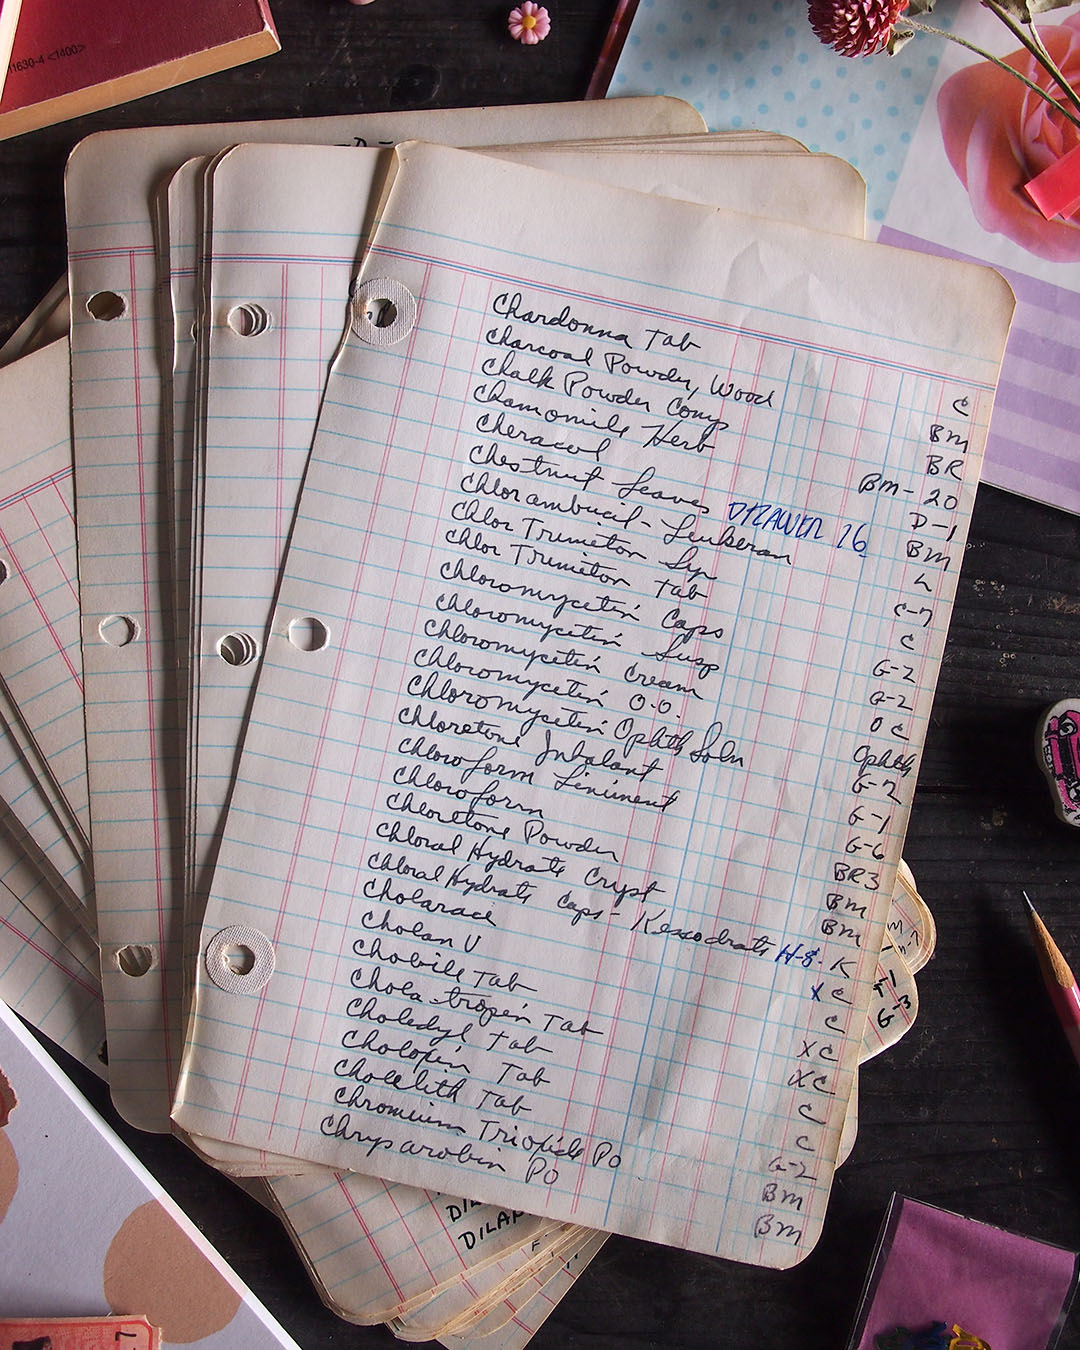 11630-4 <1400>
Chardonna Tab C
Charcoal Powder, Wood BM
Chalk Powder Comp BR
Chamomile Herb BM-20
Cheracol D-1
Chestnut Leaves DRAWER 26 BM
Chlorambucil - Leukeran L
Chlor Trimeton Syr C-7
Chlor Trimeton Tab C
Chloromycetin Caps G-2
Chloromycetin Susp G-2
Chloromycetin Cream OC
Chloromycetin O.O. Ophth
Chloromycetin Ophth Soln G-2
Chloretone Inhalant G-1
Chloroform Liniment G-6
Chloroform BR3
Chloretone Powder BM
Chloral Hydrate Cryst BM
Chloral Hydrate Caps - Kessodrate H-8- K
Cholarace XC
Cholan V C
Chobile Tab XC
Chola-tropin Tab XC
Choledyl Tab C
Cholopin Tab C
Chocelith Tab G-2
Chromium Trioxide PO BM
Chrysarobin PO BM
G-3
7